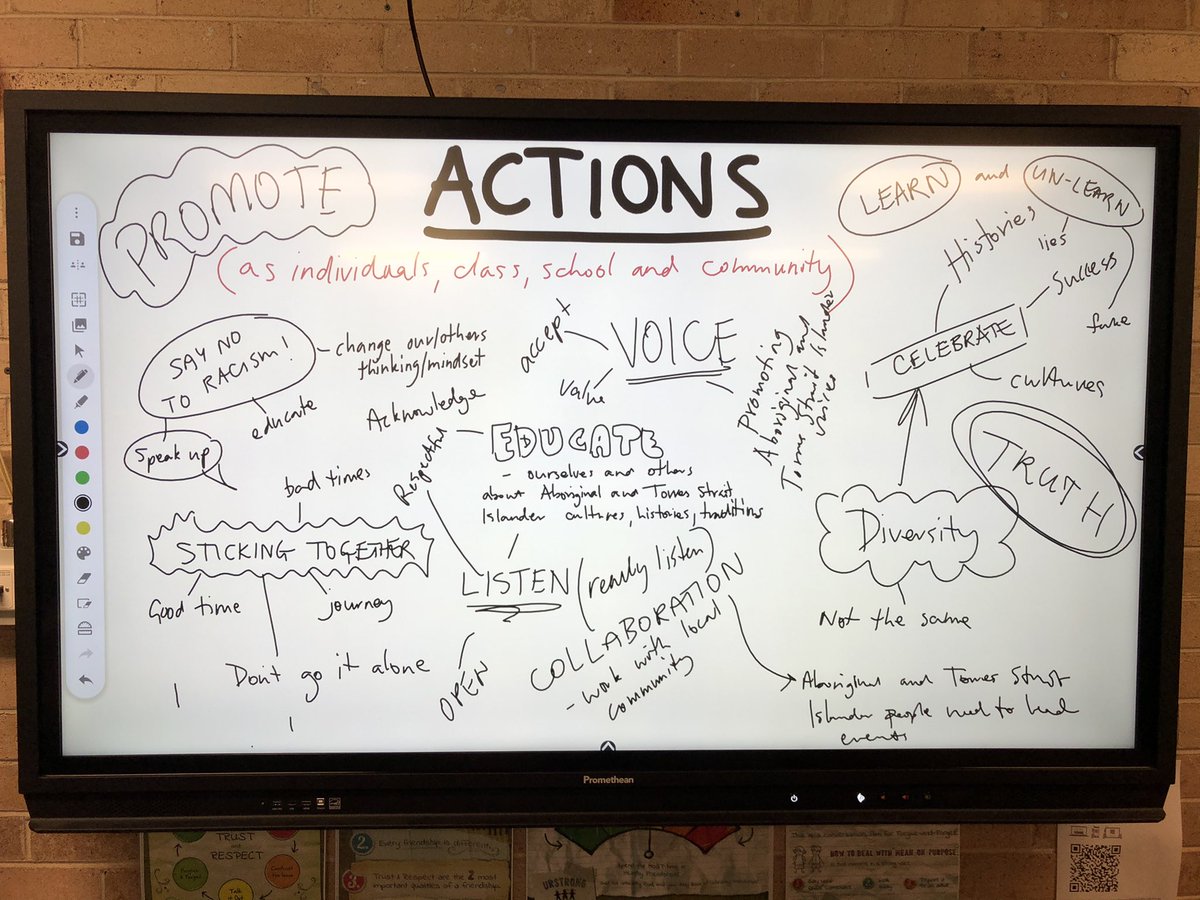 PROMOTE
ACTIONS
(as individuals, class, school and community)
LEARN and UN-LEARN
lies
fake
Histories
Success
CELEBRATE
cultures
TRUTH
Diversity
Not the same
SAY NO
TO RACISM!
change our/others
thinking/mindset
educate
Speak up
accept
VOICE
Value
Promoting
Aboriginal and
Torres Strait Islander
voices
Acknowledge
EDUCATE
- ourselves and others
about Aboriginal and Torres Strait
Islander cultures, histories, traditions
Respectful
LISTEN (really listen)
OPEN
bad times
STICKING TOGETHER
Good time
journey
Don't go it alone
COLLABORATION
- work with local
community
Aboriginal and Torres Strait
Islander people need to lead
events
Promethean
TRUST
and
RESPECT
2. Every friendship is different.
3. Trust & Respect are the 2 most
important qualities of a friendship.
URSTRONG
HOW TO DEAL WITH MEAN-ON-PURPOSE